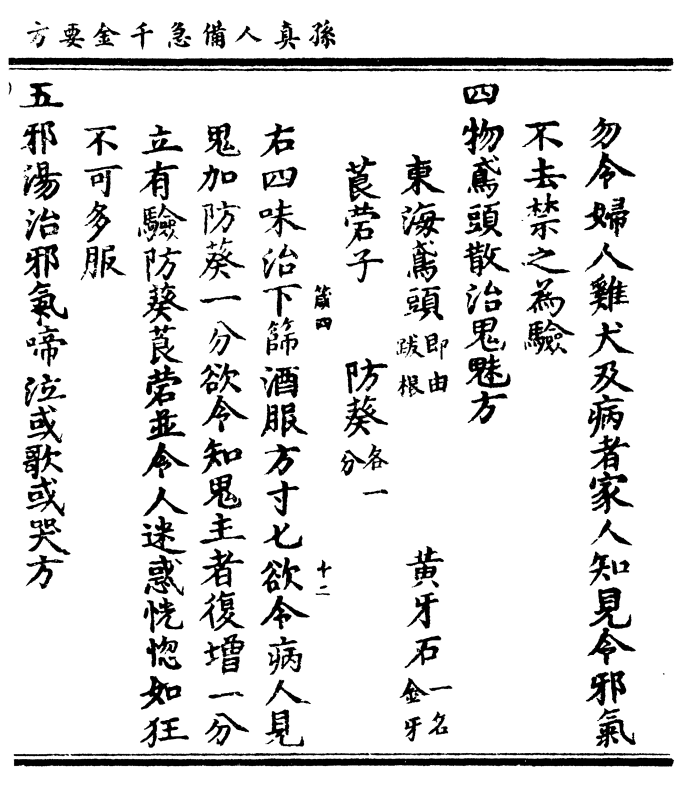 孫真人備急千金要方
勿令婦人雞犬及病者家人知見令邪氣
不去禁之為驗
四物鳶頭散治鬼魅方
東海鳶頭即由跋根 黃牙石一名金牙
莨菪子 防葵各一分
右四味治下篩酒服方寸匕欲令病人見
鬼加防葵一分欲令知鬼主者復增一分
立有驗防葵莨菪並令人迷惑恍惚如狂
不可多服
五邪湯治邪氣啼泣或歌或哭方
箴四
十二